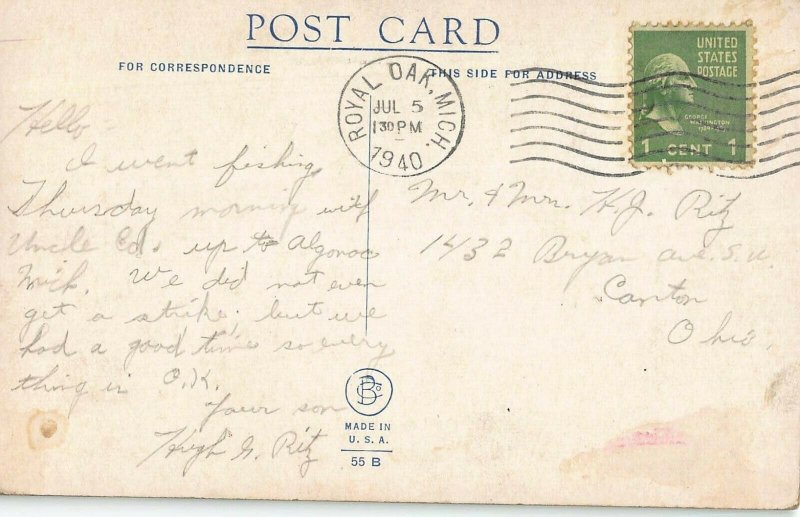 POST CARD
FOR CORRESPONDENCE
THIS SIDE FOR ADDRESS
ROYAL OAK, MICH.
JUL 5
1 30 PM
1940
UNITED
STATES
POSTAGE
GEORGE
WASHINGTON
1 CENT 1
Hello
I went fishing
Thursday morning with
Uncle Ed. up to Algonac
Mich. We did not even
get a strike, but we
had a good time so every
thing is O.K.
Your son
Hugh G. Ritz
Mr. & Mrs. H.J. Ritz
1432 Bryan ave. S.W.
Canton
Ohio.
MADE IN
U. S. A.
55 B